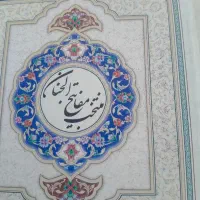 منتخب مفاتیح الجنان